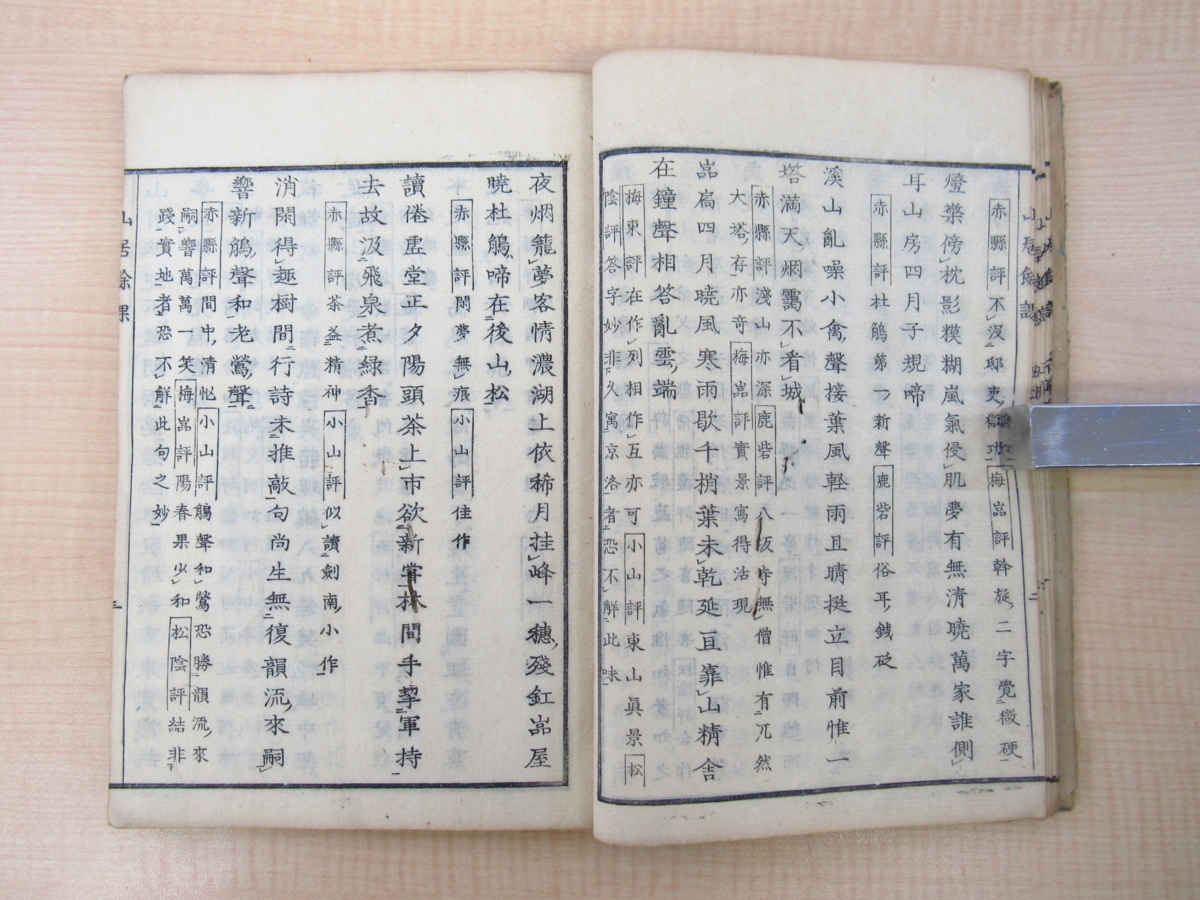 赤縣評不涊邸吏
梅嵓評幹旋二字覺微硬
燈藥傍枕影糢糊嵐氣侵肌夢有無淸曉萬家誰側
耳山房四月子規啼
赤縣評杜鵑第一新聲鹿砦評俗耳鍼砭
溪山亂噪小禽聲接葉風輕雨且晴挺立目前惟一
塔滿天烟靄不看城
赤縣評淺山亦深鹿砦評八坂寺無僧惟有兀然
大塔存亦奇梅嵓評實景寫得活現
嵓扃四月曉風寒雨歇千梢葉未乾延亘靠山精舍
在鐘聲相答亂雲端
梅東評在作列相作互亦可小山評東山眞景松
陰評答字妙非久寓京洛者恐不解此味
夜烟籠夢客情濃湖上依稀月挂峰一穗殘釭嵓屋
曉杜鵑啼在後山松
赤縣評閑夢無痕小山評佳作
讀倦虛堂正夕陽頭茶上市欲新嘗林間手挈軍持
去故汲飛泉煮綠香
赤縣評茶益精神小山評似讀劍南小作
消閑得趣樹間行詩未推敲句尚生無復韻流來嗣
響新鵑聲和老鶯聲
赤縣評間中情怳小山評鵑聲和鶯恐勝韻流來
嗣響萬萬一笑梅嵓評陽春果少和松陰評結非
踐實地者恐不解此句之妙
山居餘課